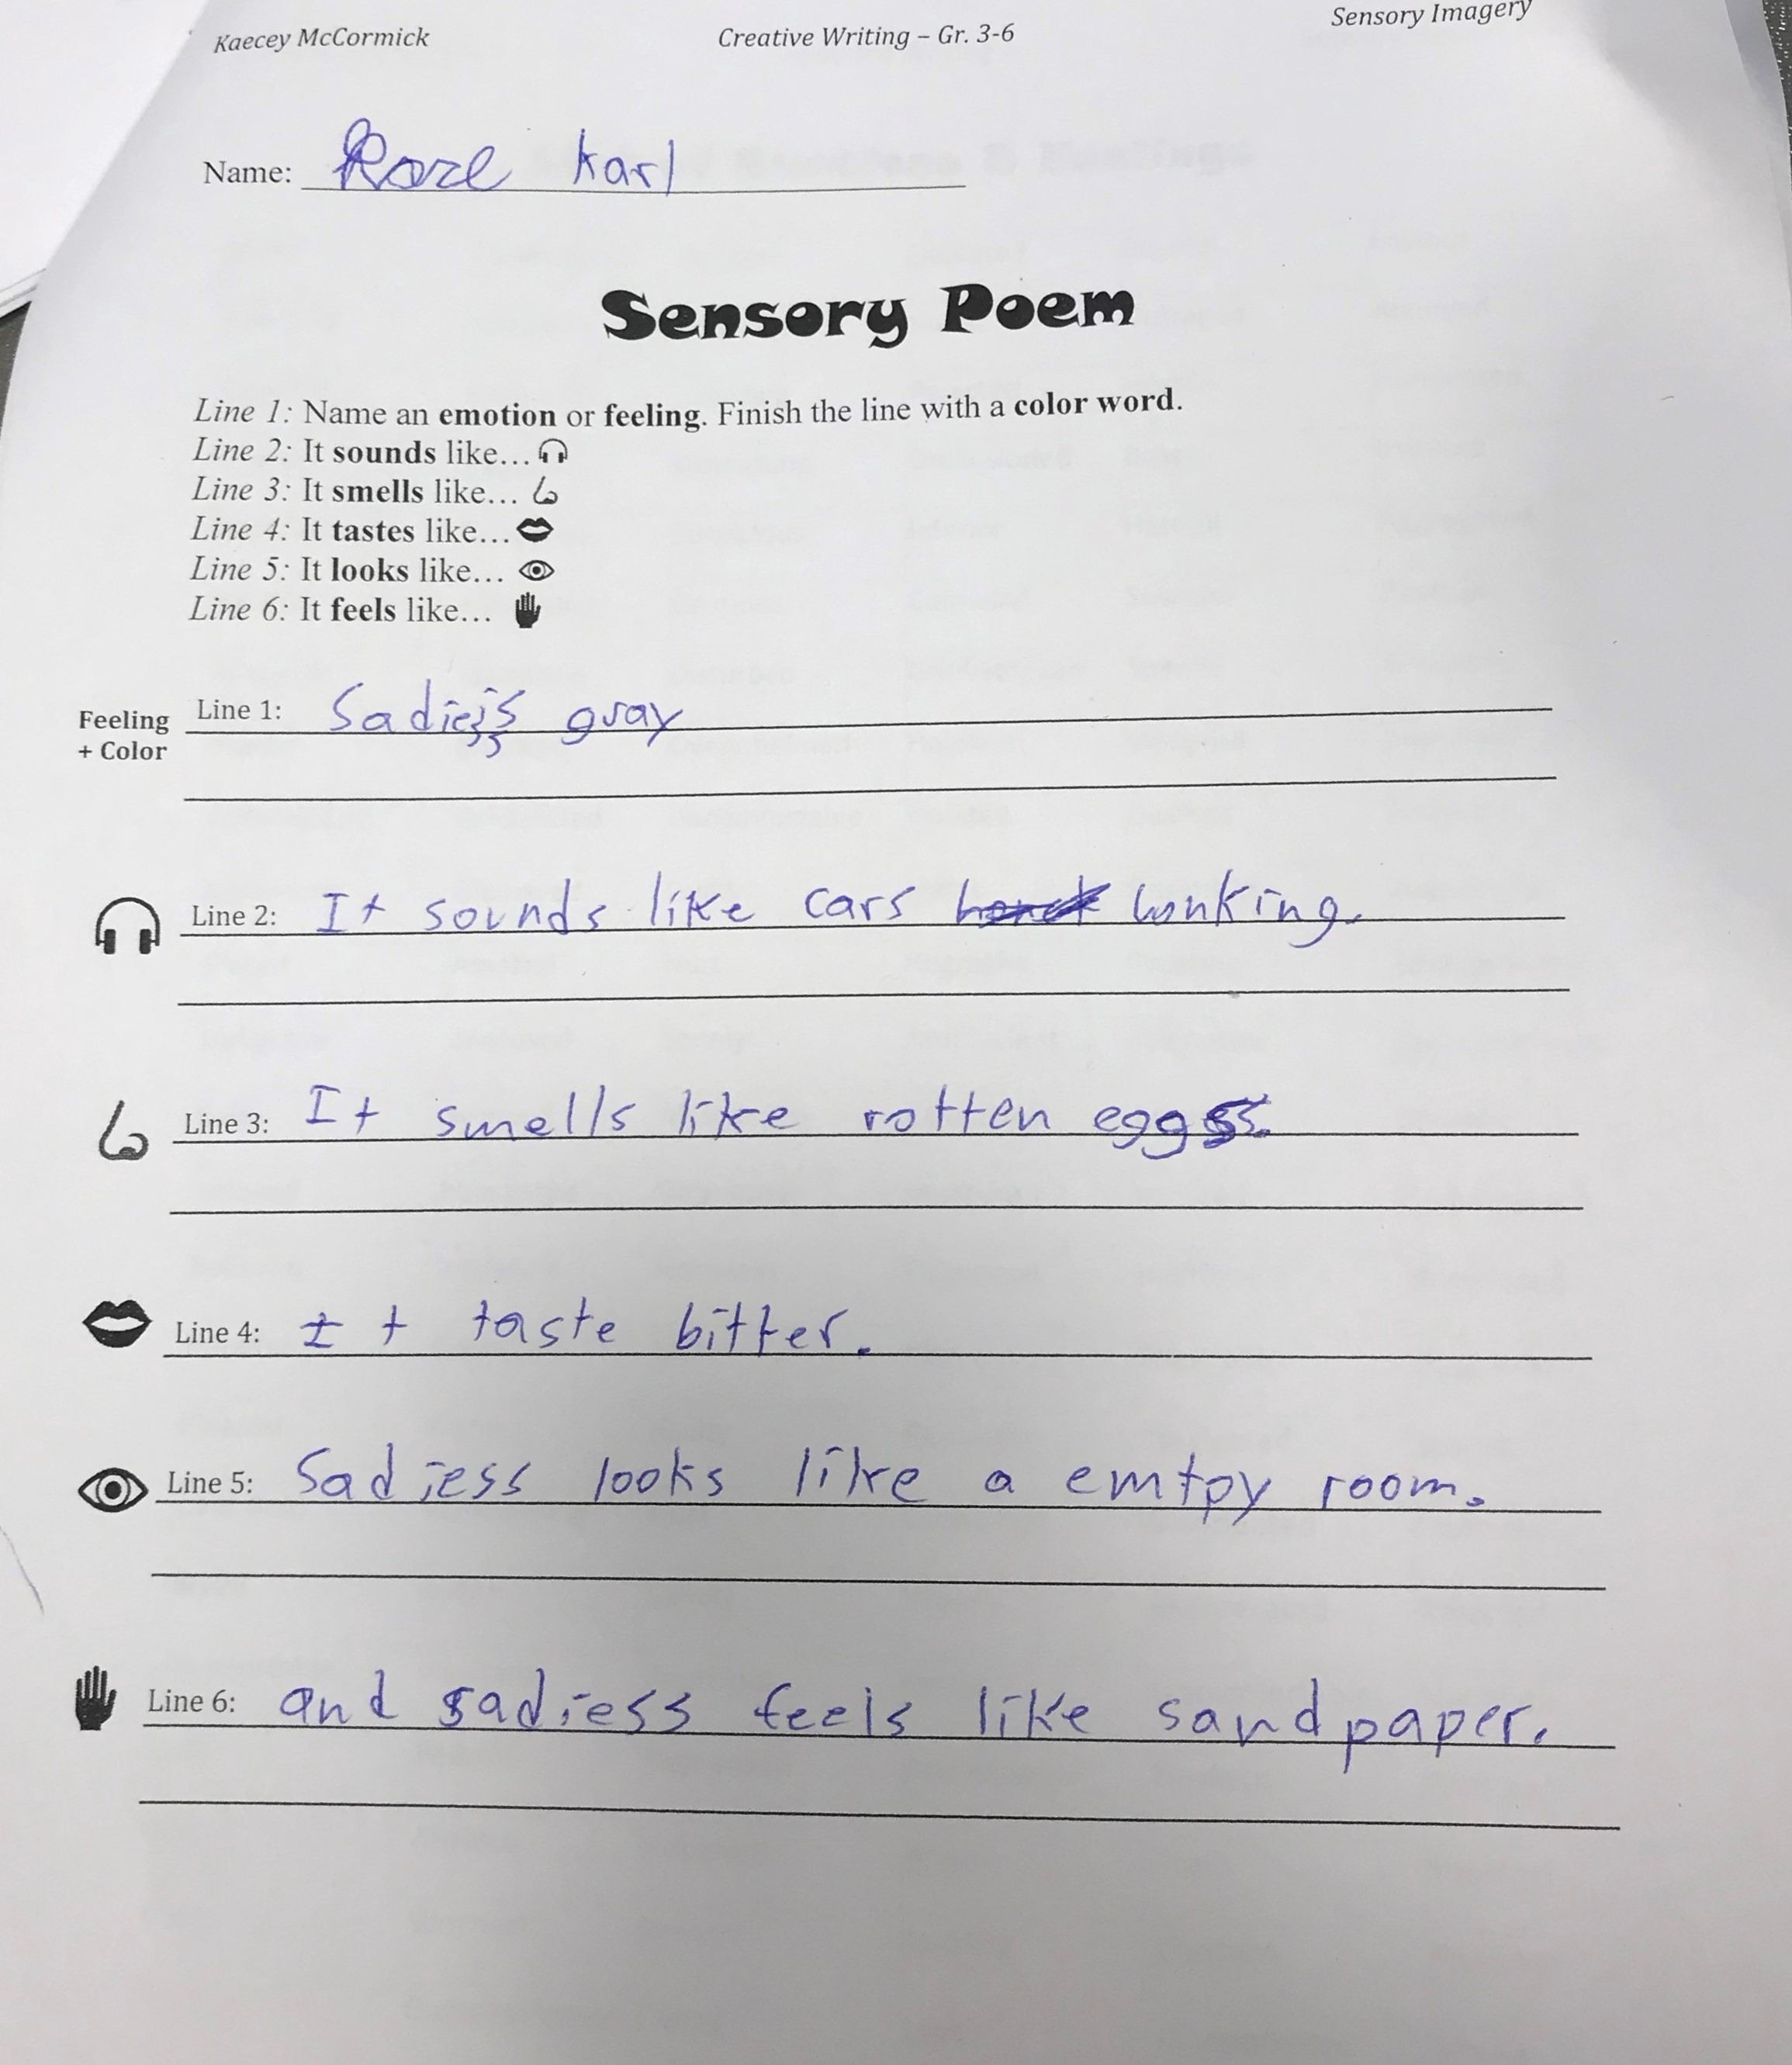 Kaecey McCormick
Creative Writing – Gr. 3-6
Sensory Imagery
Name: Karl
Sensory Poem
Line 1: Name an emotion or feeling. Finish the line with a color word.
Line 2: It sounds like...
Line 3: It smells like...
Line 4: It tastes like...
Line 5: It looks like...
Line 6: It feels like...
Feeling
+ Color
Line 1: gray
Line 2: It sounds like cars honking.
Line 3: It smells like rotten eggs.
Line 4: It taste bitter.
Line 5: Sadiess looks like a emtpy room.
Line 6: and sadiess feels like sandpaper.